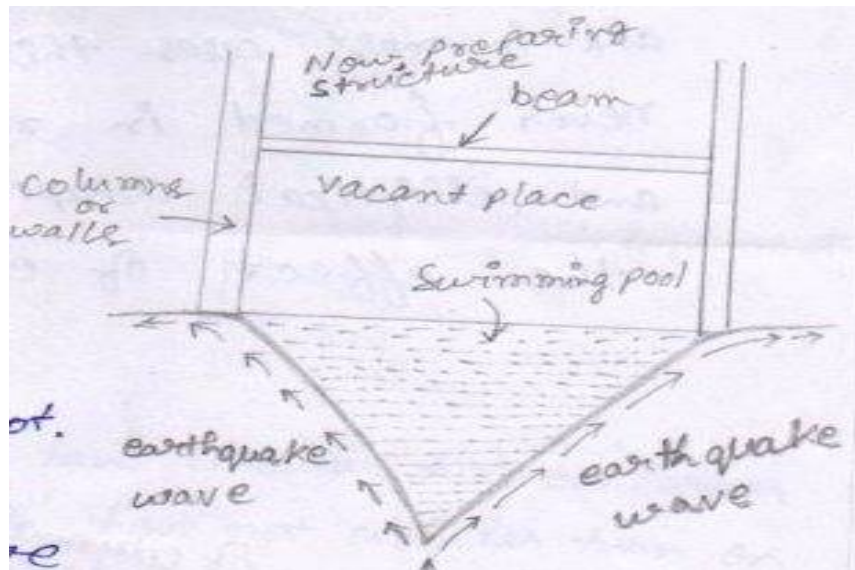 Now preparing
structure
beam
columns
or
walls
vacant place
swimming pool
ot.
earthquake
wave
earthquake
wave
re